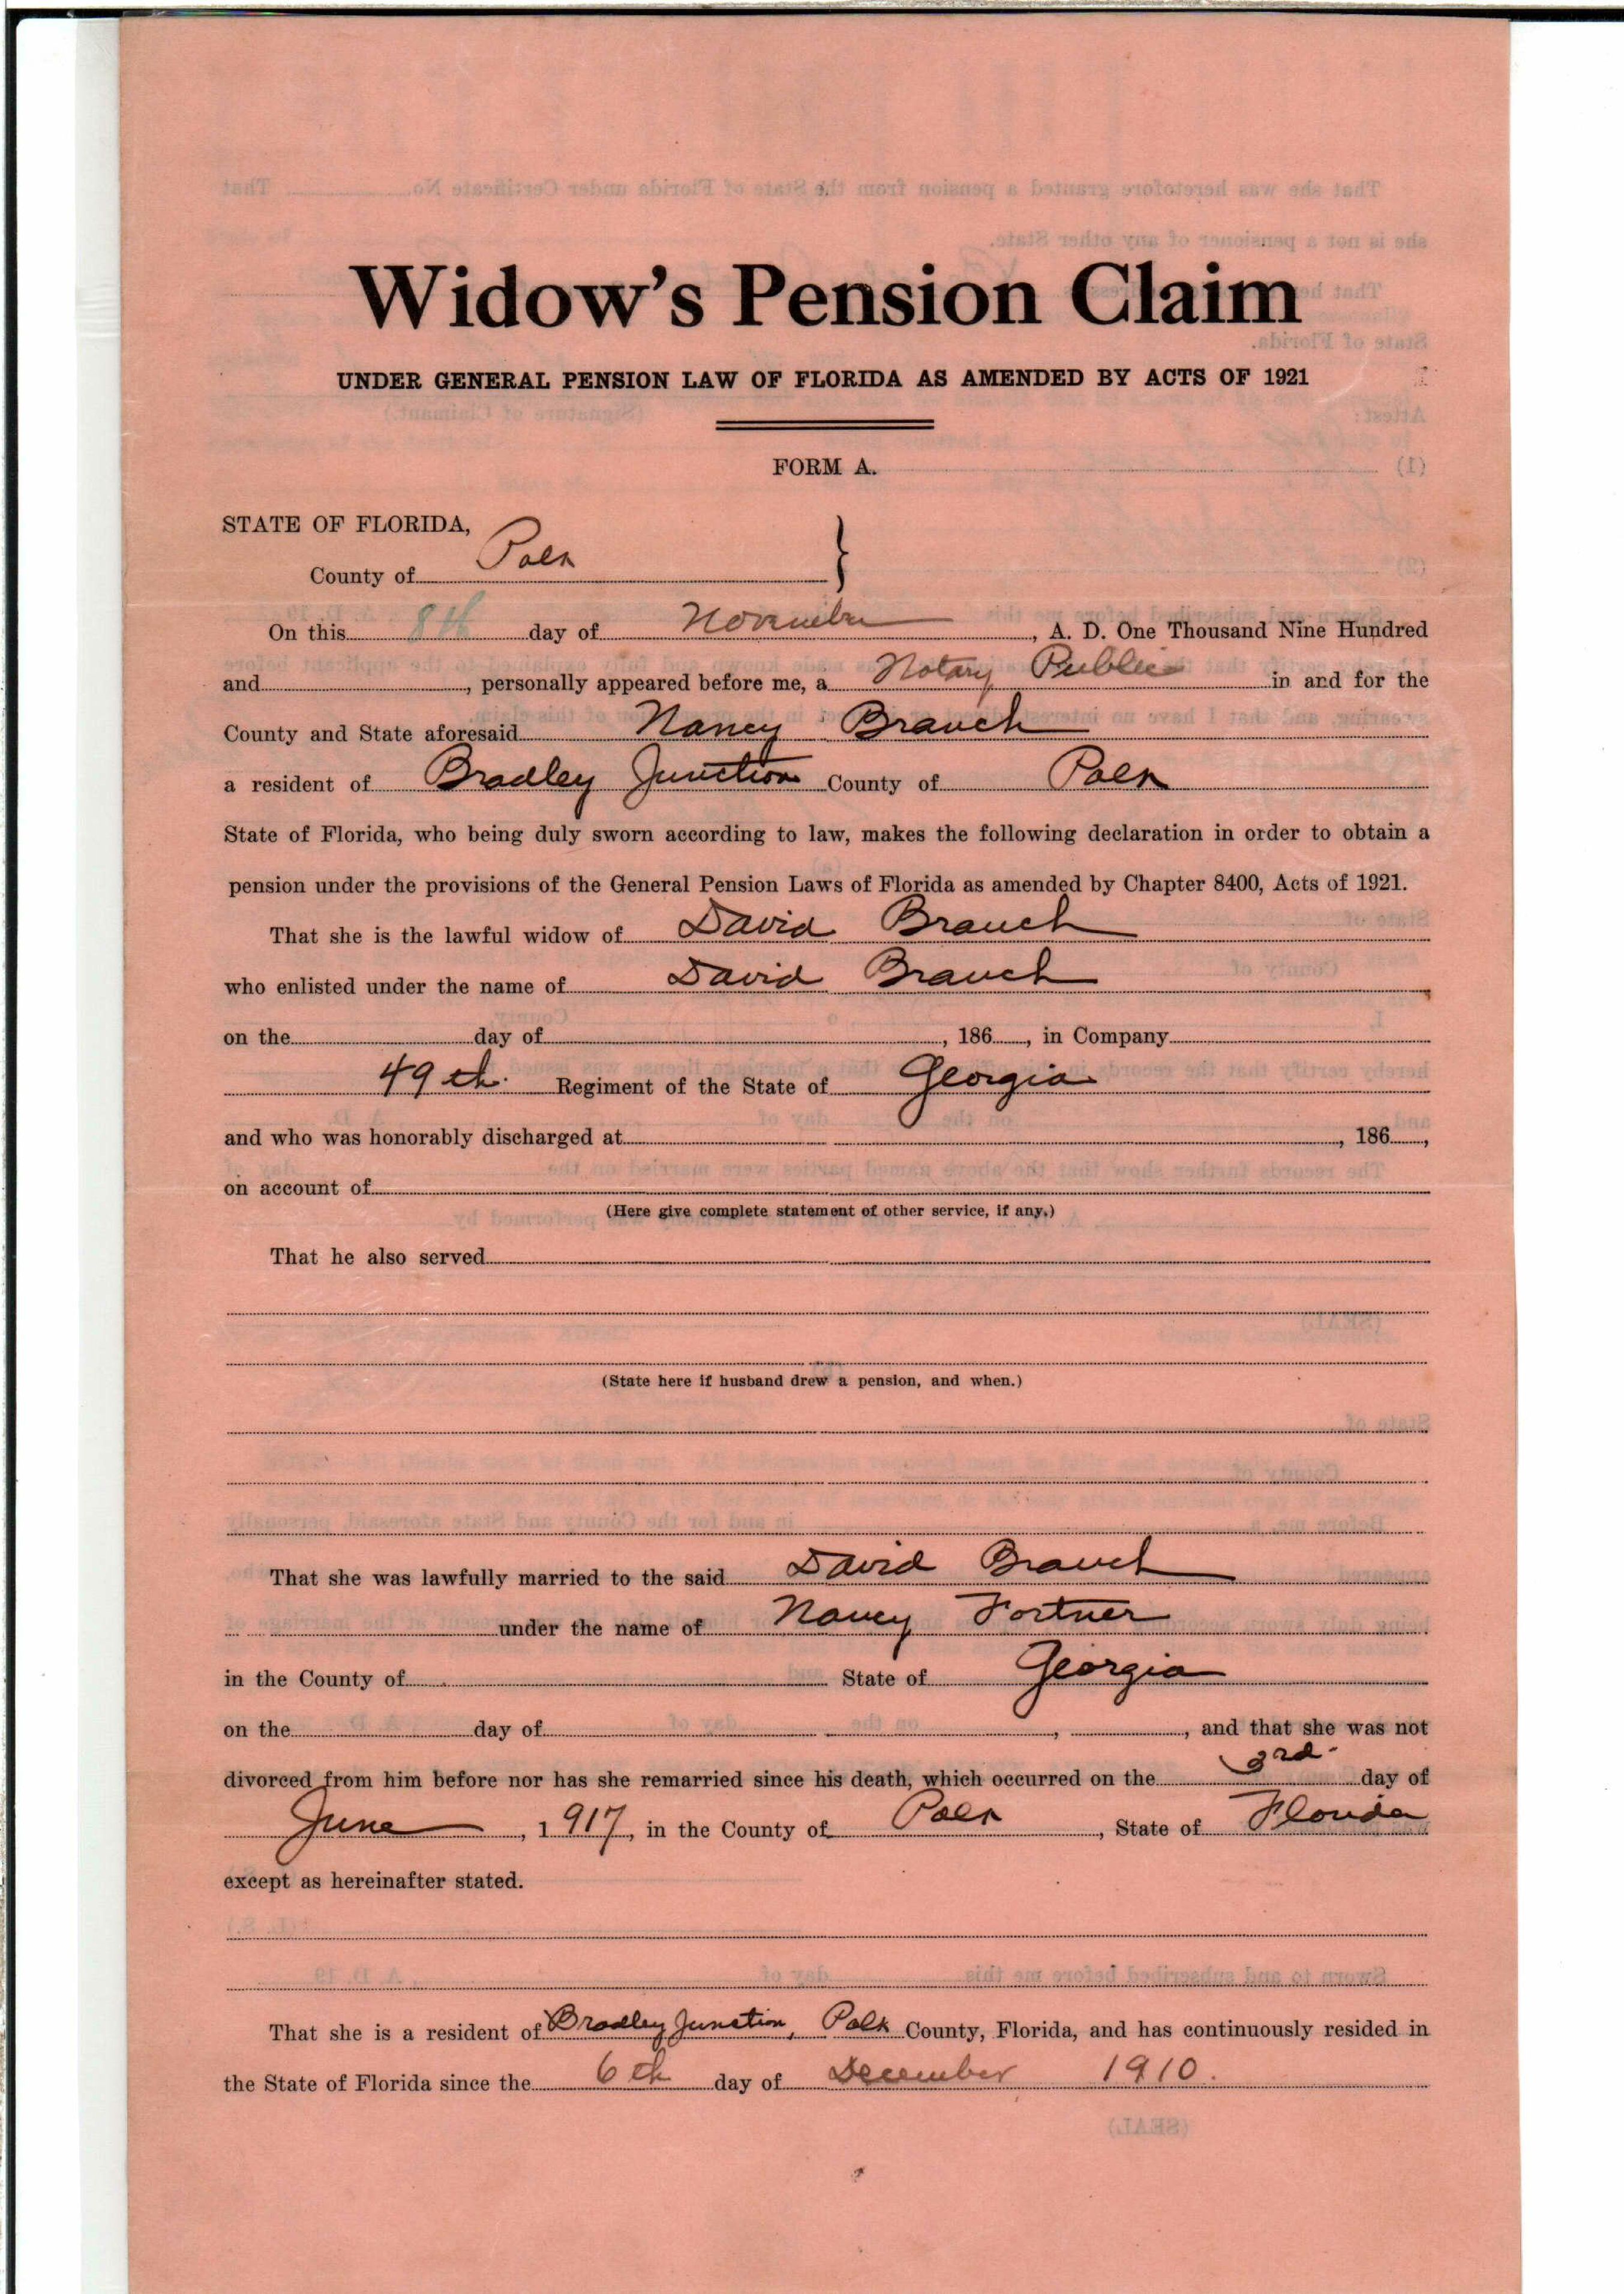 Widow's Pension Claim
UNDER GENERAL PENSION LAW OF FLORIDA AS AMENDED BY ACTS OF 1921
FORM A.
STATE OF FLORIDA,
County of Polk
On this 8th day of November, A. D. One Thousand Nine Hundred
and , personally appeared before me, a Notary Public in and for the
County and State aforesaid Nancy Branch
a resident of Bradley Junction County of Polk
State of Florida, who being duly sworn according to law, makes the following declaration in order to obtain a
pension under the provisions of the General Pension Laws of Florida as amended by Chapter 8400, Acts of 1921.
That she is the lawful widow of David Branch
who enlisted under the name of David Branch
on the day of , 186 , in Company
49th. Regiment of the State of Georgia
and who was honorably discharged at , 186 ,
on account of
(Here give complete statement of other service, if any.)
That he also served
(State here if husband drew a pension, and when.)
That she was lawfully married to the said David Branch
under the name of Nancy Fortner
in the County of State of Georgia
on the day of , , and that she was not
divorced from him before nor has she remarried since his death, which occurred on the 3rd. day of
June, 1917, in the County of Polk, State of Florida
except as hereinafter stated.
That she is a resident of Bradley Junction, Polk County, Florida, and has continuously resided in
the State of Florida since the 6th day of December 1910.
(SEAL)